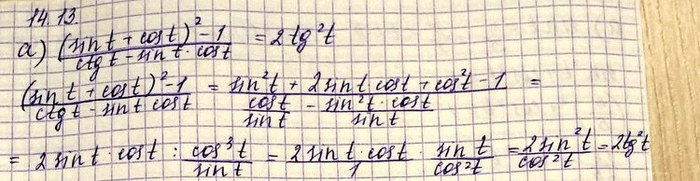 14.13.
а) (sin t + cos t)² - 1 / ctg t - sin t · cos t = 2 tg² t
(sin t + cos t)² - 1 / ctg t - sin t cos t = sin² t + 2 sin t cos t + cos² t - 1 / cos t / sin t - sin² t · cos t / sin t =
= 2 sin t · cos t : cos³ t / sin t = 2 sin t · cos t / 1 · sin t / cos² t = 2 sin² t / cos² t = 2 tg² t